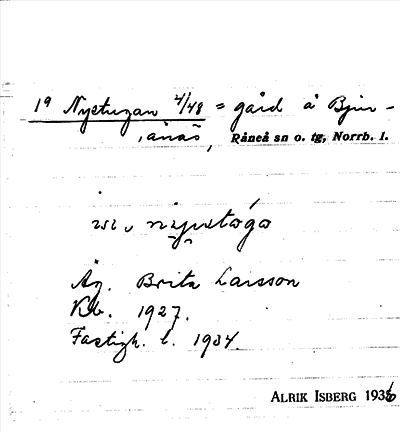 19 Nystugan 4/48 = gård å Bjur-
ånäs, Råneå sn o. tg, Norrb. l.
Äg. Brita Larsson
Kb. 1927.
Fastigh. l. 1934.
ALRIK ISBERG 1936